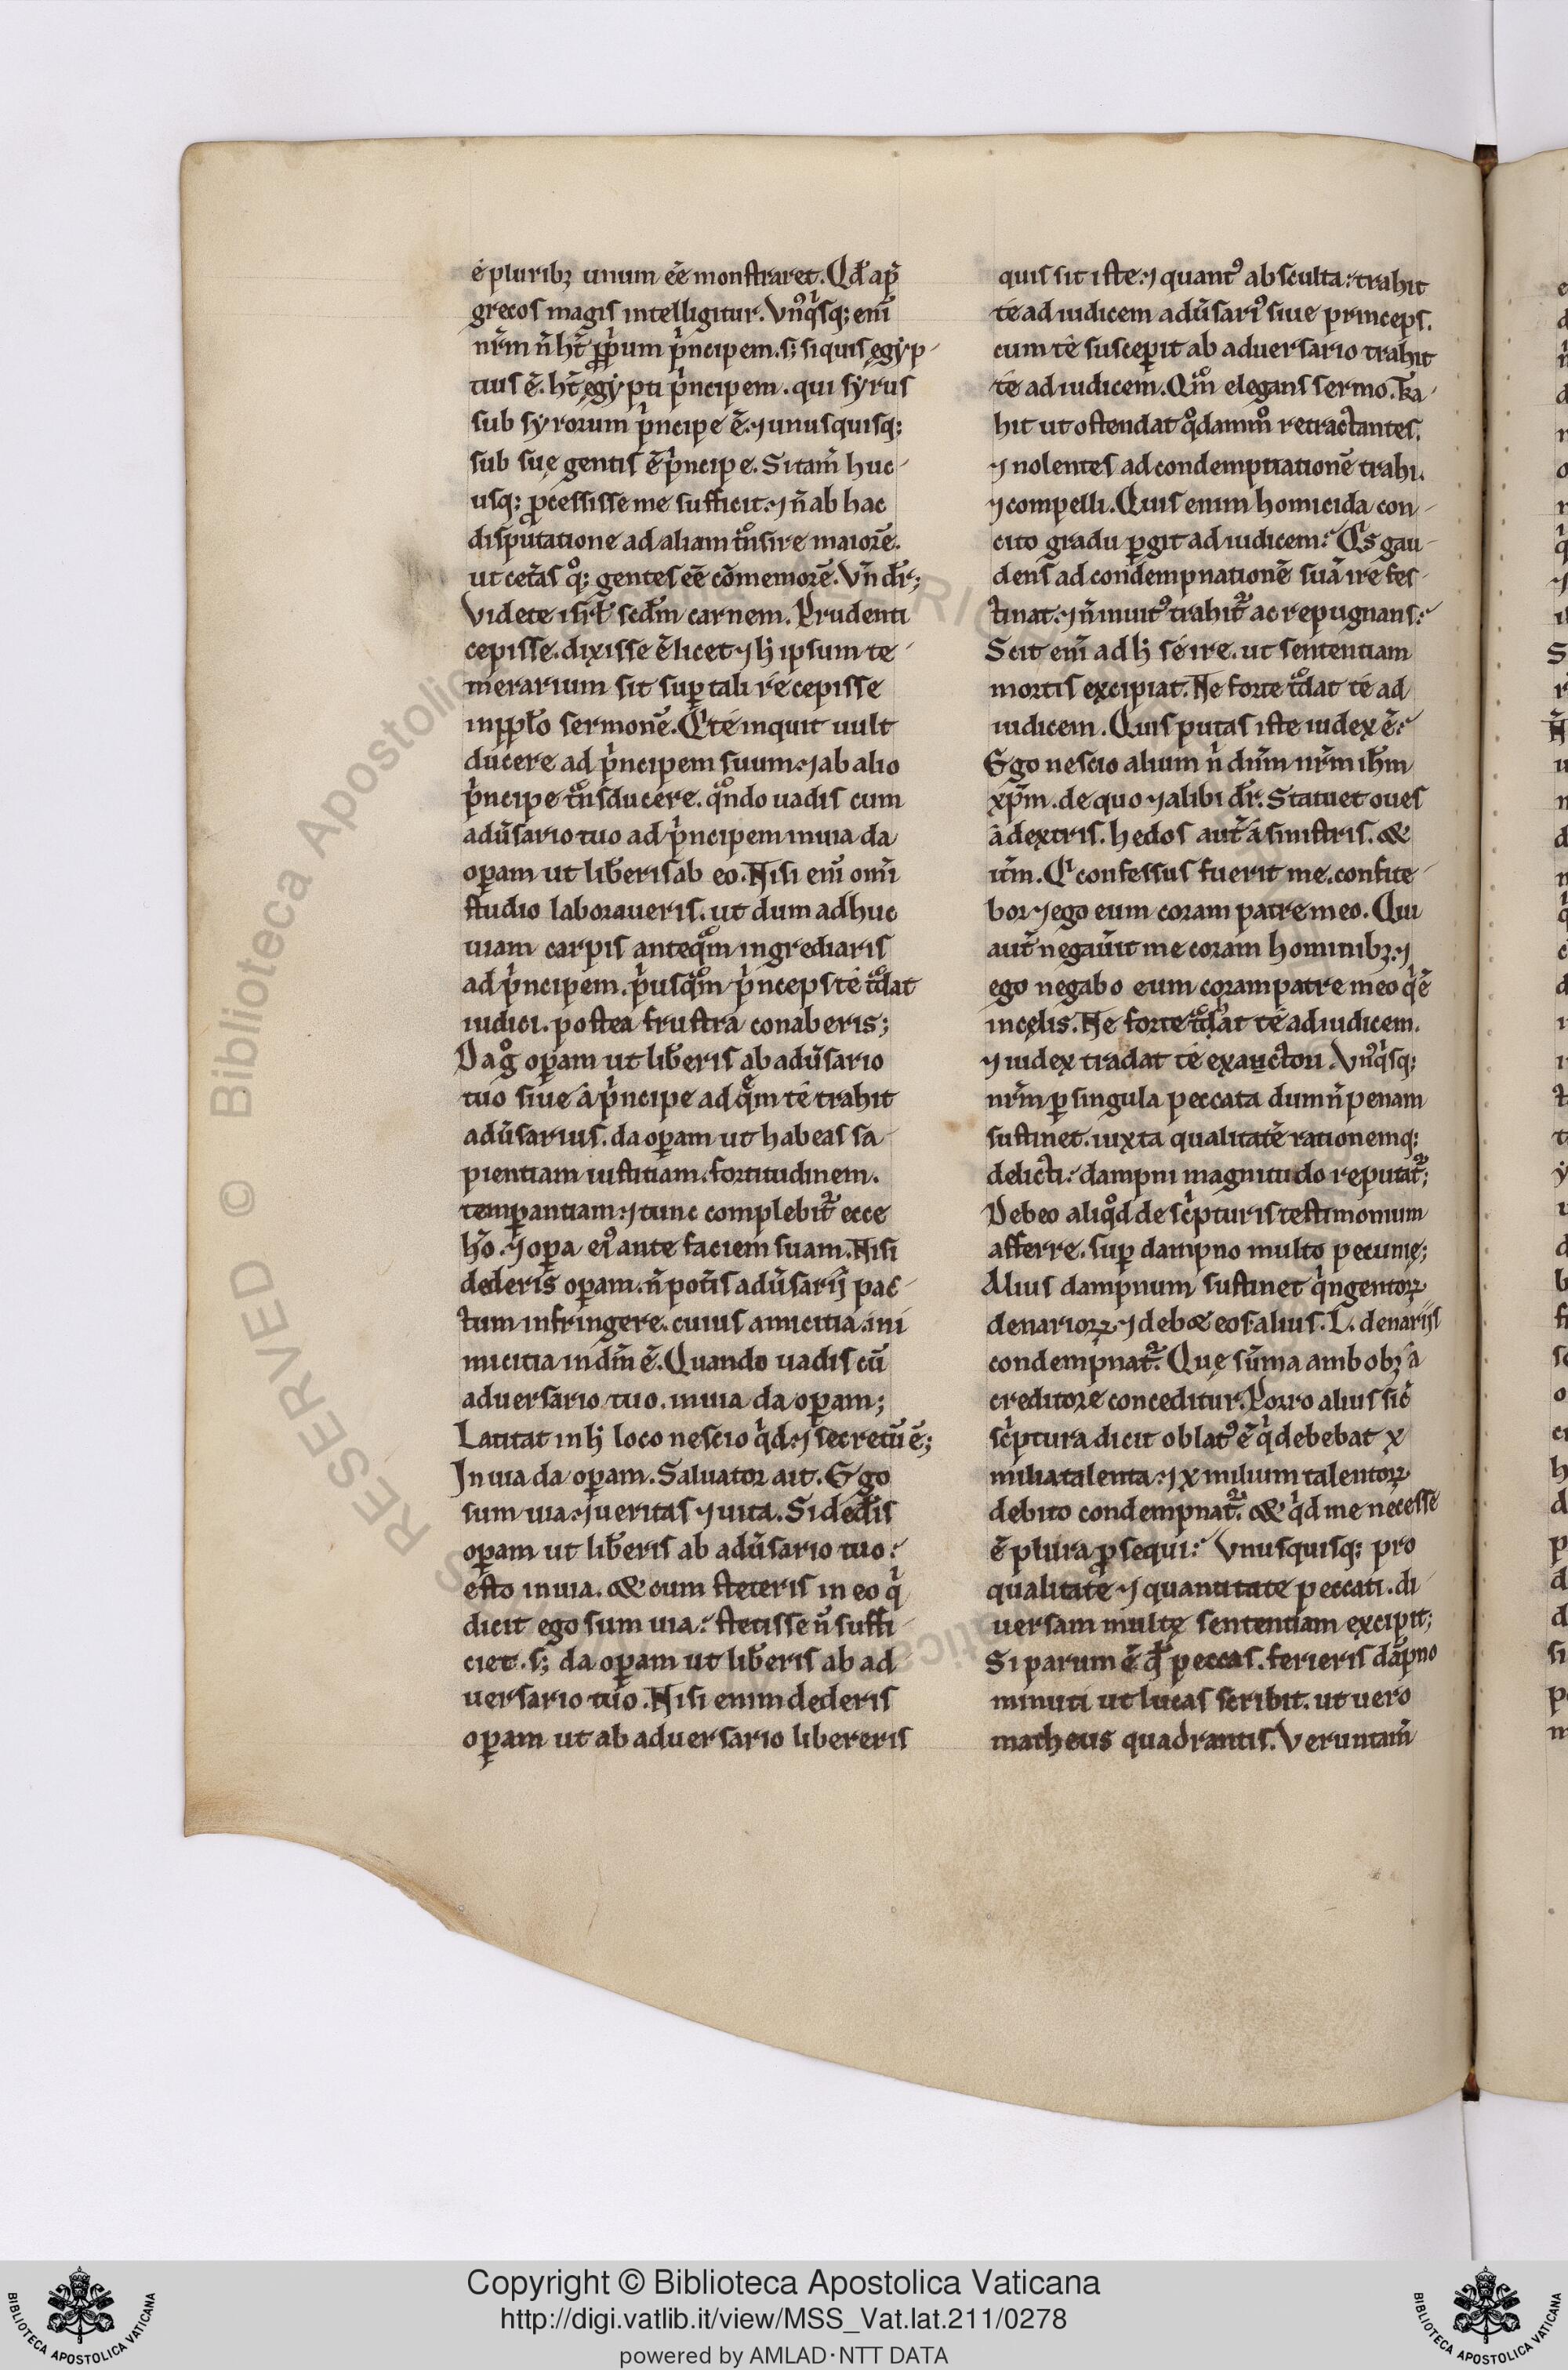 é pluribꝫ unum eē monſtraret. Qđ ap̄
grecos magiſ intelligitur. Vnꝰqͥſq; eni̅
nr̅m n̅ ht̅ ꝓpͥum pͥncipem. ſ; ſi quiſ ęgẏp-
tiuſ ē. ht̅ ęgẏpti pͥncipem. qui ſẏruſ
ſub ſẏrorum pͥncipe ē. ⁊ unuſquiſq;
ſub ſuę gentiſ ē pͥncipe. Si tam̅ huc-
uſq; ꝓceſſiſſe me ſufficit. ⁊ n̅ ab hac
diſputatione ad aliam tͣnſire maiorē.
ut cet̅aſ qͦ; genteſ eē cōmemorē. Vn̅ dr̅;
Videte iſrl̅ ſcd̅m carnem. Prudenti
cepiſſe. dixiſſe ē licet ⁊ h̅ ipſum te-
merarium ſit ſuꝑ tali récepiſſe
in ppl̅o ſermonē. Q̅ té inquit uult
ducere ad pͥncipem ſuum. ⁊ ab alio
pͥncipe tͣnſducere. qͣndo uadiſ cum
adu̅ſario tuo ad pͥncipem in uia da
oꝑam ut lib̅eriſ ab eo. Niſi eni̅ omi̅
ſtudio laboraueriſ. ut dum adhuc
uiam carpiſ anteqͣm ingrediariſ
ad pͥncipem. pͥuſqͣm pͥncepſ té tͣdat
iudici. poſtea fruſtra conaberiſ;
Da gͦ oꝑam ut lib̅eriſ ab adu̅ſario
tuo ſiue â pͥncipe ad qͤm tê trahit
adu̅ſariuſ. da oꝑam ut habeaſ ſa-
pientiam iuſtitiam. fortitudinem.
temꝑantiam ⁊ tunc complebit᷑ ecce
ho̅. ⁊ oꝑa eiꝰ ante faciem ſuam. Niſi
dederiſ oꝑam. n̅ pot̅iſ adu̅ſarij pac-
tum infringere. cuiuſ amicitia. ini
micitia in dm̅ ē. Quando uadiſ cū
aduerſario tuo. in uia da oꝑam;
Latitat in h̅ loco neſcio qͥd. ⁊ ſecretū ē;
In uia da oꝑam. Saluator ait. Ego
ſum uia. ⁊ ueritaſ ⁊ uita. Si ded̅iſ
oꝑam ut lib̅eriſ ab adu̅ſario tuo?
eſto in uia. & cum ſteteriſ in eo qͥ
dicit ego ſum uia? ſtetiſſe n̅ ſuffi-
ciet. ſ; da oꝑam ut lib̅eriſ ab ad-
uerſario tuo. Niſi enim dederiſ
oꝑam ut ab aduerſario libereriſ
quiſ ſit iſte. ⁊ quantꝰ abſculta? trahit
té ad iudicem adu̅ſariꝰ ſiue princepſ.
cum tê ſuſceꝑit ab aduerſario trahit
té ad iudicem. Qm̊ eleganſ ſermo. Tͣa-
hit ut oſtendat qͦdammͦ retractanteſ.
⁊ nolenteſ ad condemptiationē trahi.
⁊ compelli. Quiſ enim homicida con-
cito gradu ꝑgit ad iudicem? Qͥſ gau-
denſ ad condempnationē ſuā ire feſ-
tinat. ⁊ n̅ inuitꝰ trahit᷑ ac repugnanſ?
Scit eni̅ ad h̅ ſé ire. ut ſententiam
mortiſ excipiat. Ne forte tͣdat té ad
iudicem. Quiſ putaſ iſte iudex ē?
Ego neſcio alium nͥ dn̅m nr̅m ih̅m
xp̅m. de quo ⁊ alibi dr̅. Statuet oueſ
â dextriſ. hedoſ aut̅ â ſiniſtriſ. &
it̅m. Qͥ confeſſuſ fuerit me. confite-
bor ⁊ ego eum coram patre meo. Qui
aut̅ negau̅it me coram hominibꝫ. ⁊
ego negabo eum coram patre meo qͥ ē
in cęliſ. Ne forte tͣdat té ad iudicem.
⁊ iudex tradat té exanctori. Vnꝰqͥſq;
nr̅m ꝑ ſingula peccata dum n̅ penam
ſuſtinet. iuxta qualitatē rationemq;
delicti? dampni magnitudo reputat᷑;
Debeo aliqͦd de ſcͥpturiſ teſtimonium
afferre. ſuꝑ dampno multo pecunię;
Aliuſ dampnum ſuſtinet qͥngentoꝝ
denarioꝝ. ⁊ deb& eoſ. aliuſ. L. denarijſ
condempnat᷑. Que ſūma ambobꝫ â
creditore conceditur. Porro aliuſ ſic̅
ſcͥptura dicit oblatꝰ ē qͥ debebat x
milia talenta. ⁊ x milium talentoꝝ
debito condempnat᷑. & qͥd me neceſſē
ē plura ꝓſequi? Vnuſquiſq; pro
qualitate ⁊ quantitate peccati. di-
uerſam multę ſententiam excipit;
Si parum ē qđ peccaſ. ferieriſ dāpno
minuti ut lucaſ ſcribit. ut uero
matheus quadrantiſ. Veruntam̅
RESERVED © Biblioteca Apostolica Vaticana
BIBLIOTECA APOSTOLICA VATICANA
Copyright © Biblioteca Apostolica Vaticana
http://digi.vatlib.it/view/MSS_Vat.lat.211/0278
powered by AMLAD·NTT DATA
BIBLIOTECA APOSTOLICA VATICANA